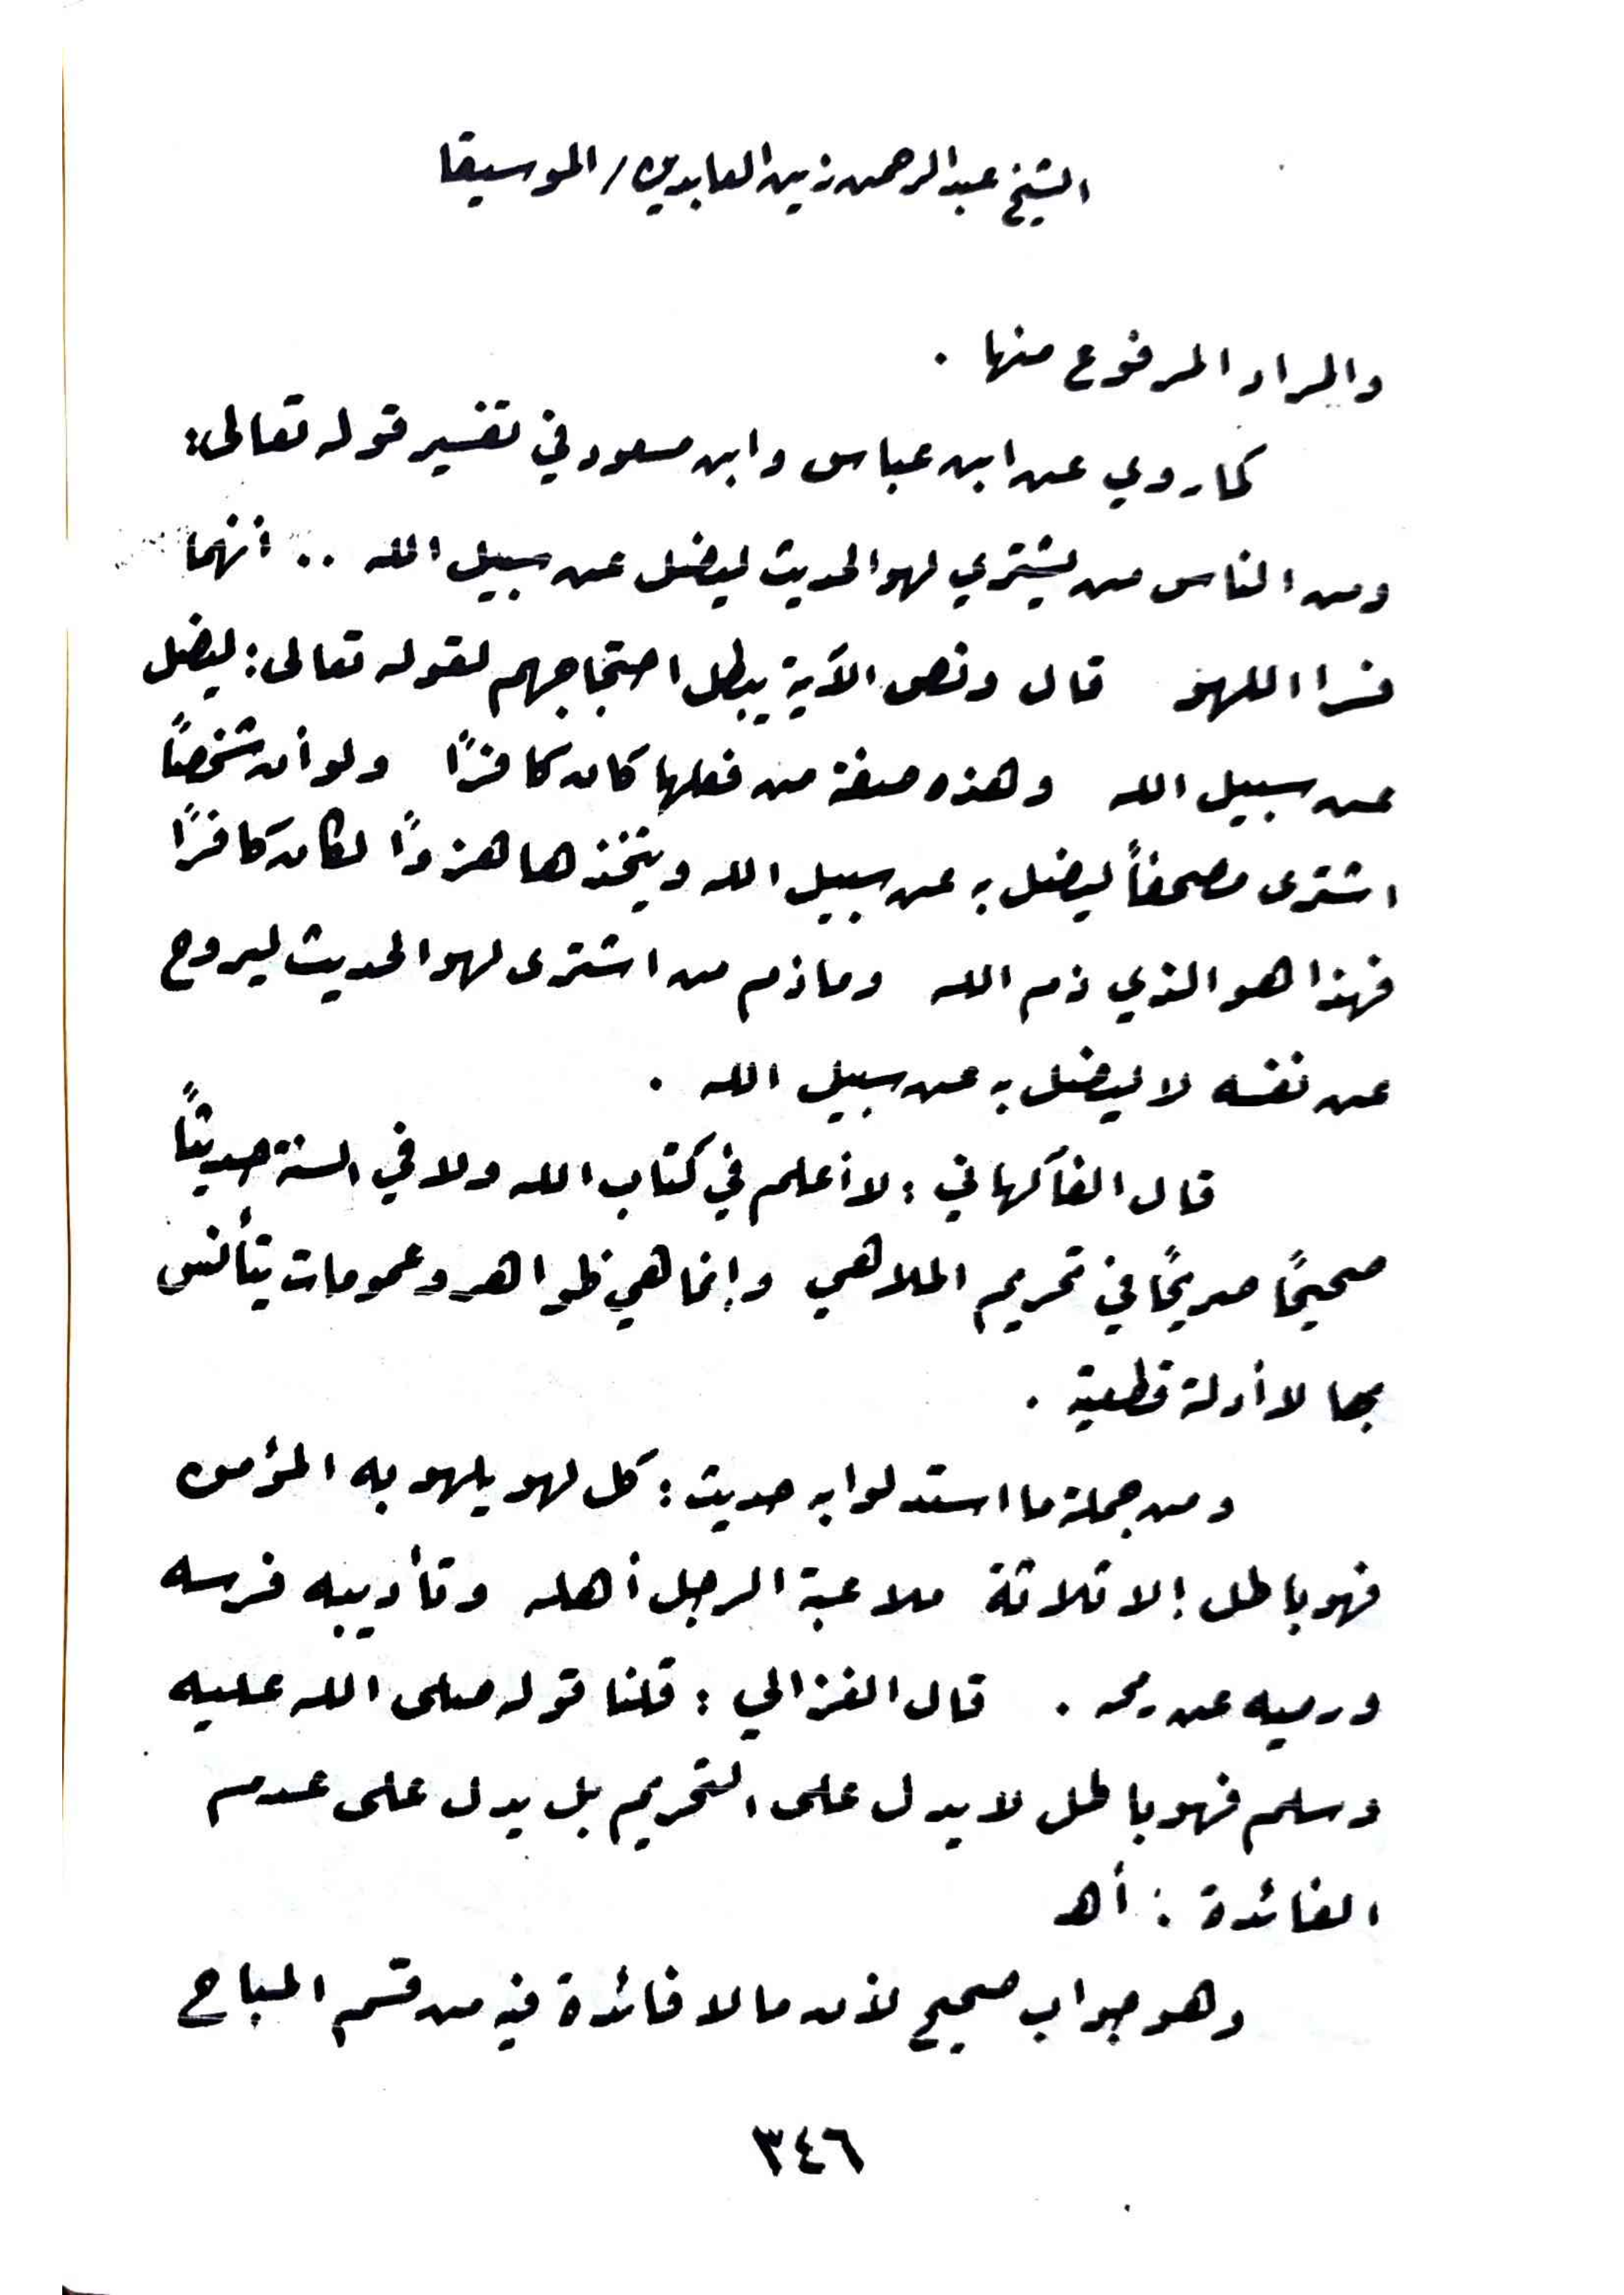 الشيخ عبدالرحمن زين العابدين / الموسيقا
والمراد المرفوع منها .
كما روي عن ابن عباس وابن مسعود في تفسير قوله تعالى:
ومن الناس من يشتري لهو الحديث ليضل عن سبيل الله .. أنهما
فسرا اللهو قال ونص الآية يبطل احتجاجهم لقوله تعالى: ليضل
عن سبيل الله وهذه صفة من فعلها كان كافرًا ولو أن شخصًا
اشترى مصحفاً ليضل به عن سبيل الله ويتخذها هزوًا لكان كافرًا
فهذا هو الذي ذم الله وما ذم من اشترى لهو الحديث ليروح
عن نفسه لا ليضل به عن سبيل الله .
قال الفاكهاني : لا أعلم في كتاب الله ولا في السنة حديثاً
صحيحًا صريحًا في تحريم الملاهي وإنما هي ظواهر وعمومات يتأنس
بها لا أدلة قطعية .
ومن جملة ما استدلوا به حديث : كل لهو يلهو به المؤمن
فهو باطل إلا ثلاثة ملاعبة الرجل أهله وتأديبه فرسه
ورميه عن رمحه . قال الغزالي : قلنا قوله صلى الله عليه
وسلم فهو باطل لا يدل على التحريم بل يدل على عدم
الفائدة : أهـ
وهو جواب صحيح لأن ما لا فائدة فيه من قسم المباح
٣٤٦